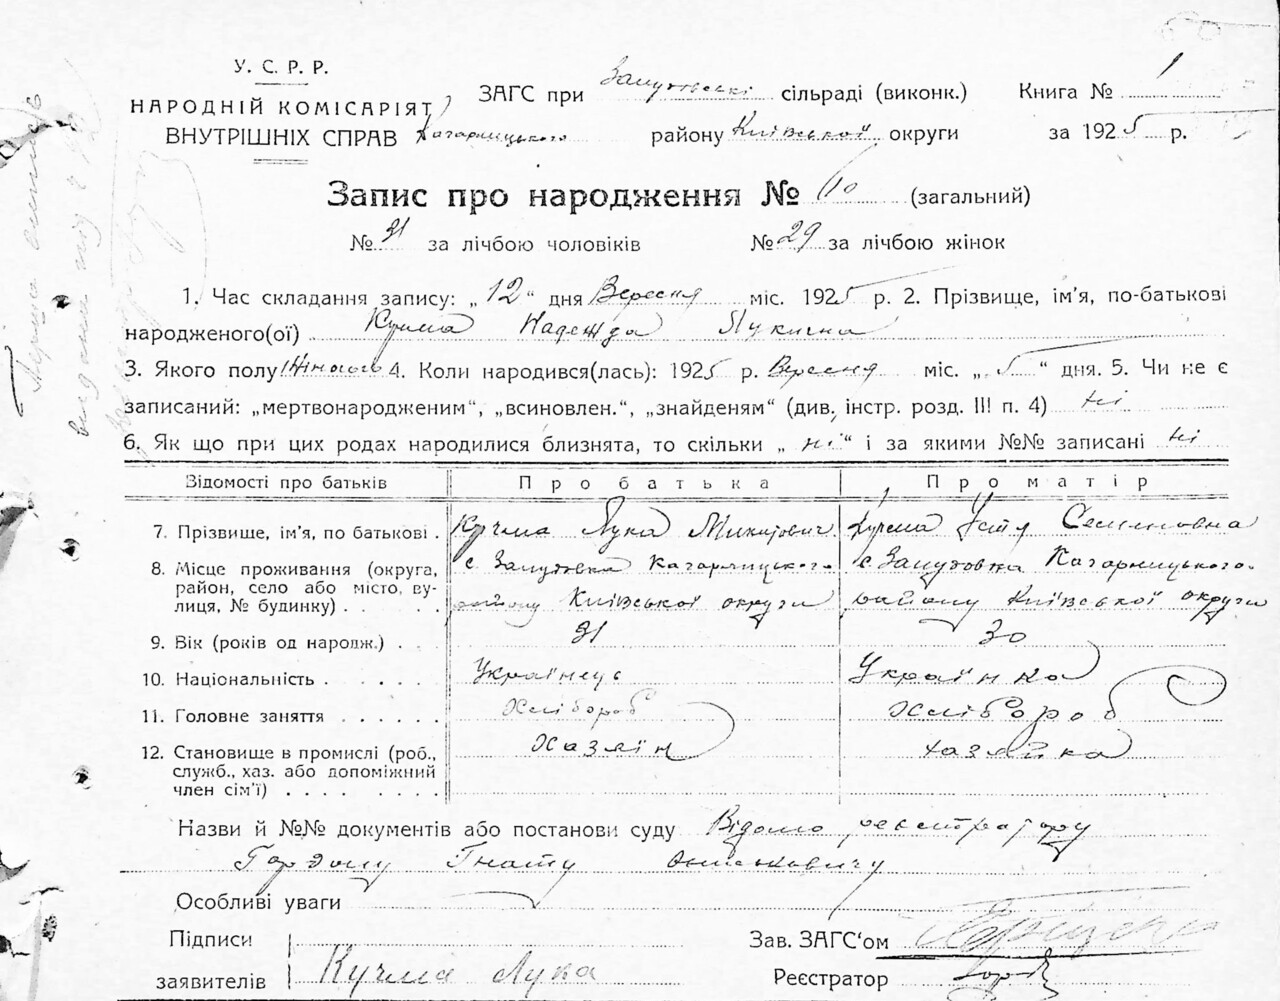 У. С. Р. Р.
НАРОДНІЙ КОМІСАРІЯТ
ВНУТРІШНІХ СПРАВ
ЗАГС при сільраді (виконк.) Книга № 1
Кагарлицького району Київської округи за 1925 р.
Запис про народження № 60 (загальний)
№ 31 за лічбою чоловіків № 29 за лічбою жінок
1. Час складання запису: „12“ дня Вересня міс. 1925 р. 2. Прізвище, ім'я, по-батькові
народженого(ої) Кучма Надежда Лукична
3. Якого полу Жіночого 4. Коли народився(лась): 1925 р. Вересня міс. „5“ дня. 5. Чи не є
записаний: „мертвонародженим“, „всиновлен.“, „знайденям“ (див. інстр. розд. III п. 4) ні
6. Як що при цих родах народилися близнята, то скільки „ні“ і за якими №№ записані ні
Відомості про батьків Про батька Про матір
7. Прізвище, ім'я, по батькові . Кучма Лука Микитович Кучма Устя Семеновна
8. Місце проживання (округа, район, село або місто, вулиця, № будинку) . . .
с Кагарлицького с Кагарлицького
району Київської округи району Київської округи
9. Вік (років од народж.) . . . 31 30
10. Національність . . . . . . Українець Українка
11. Головне заняття . . . . . . Хлібороб Хлібороб
12. Становище в промислі (роб., служб., хаз. або допоміжний член сім'ї) . . . . . . . . Хазяїн хазяйка
Назви й №№ документів або постанови суду Відомо реєстратору
Гордому Гнату
Особливі уваги
Підписи
заявителів Кучма Лука
Зав. ЗАГС'ом
Реєстратор